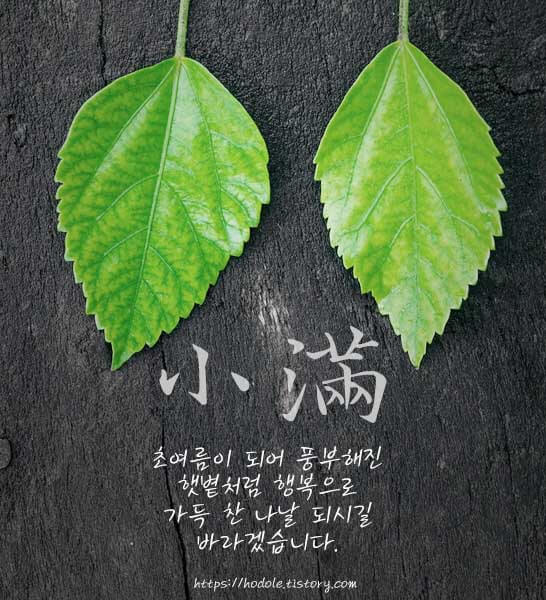 小滿
초여름이 되어 풍부해진
햇볕처럼 행복으로
가득 찬 나날 되시길
바라겠습니다.
https://hodole.tistory.com